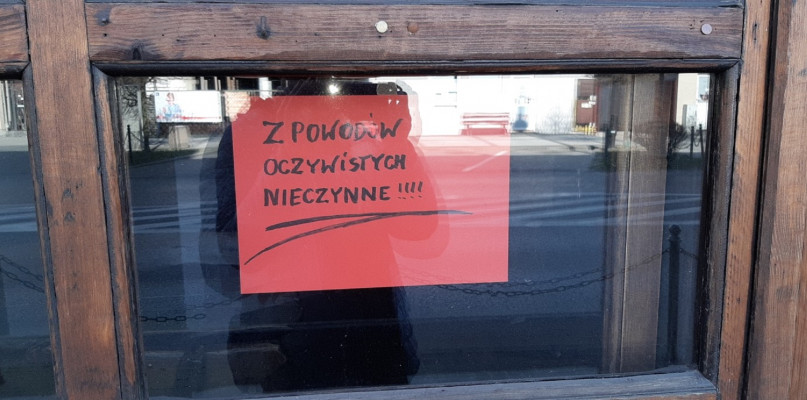 Z POWODÓW
OCZYWISTYCH
NIECZYNNE !!!!